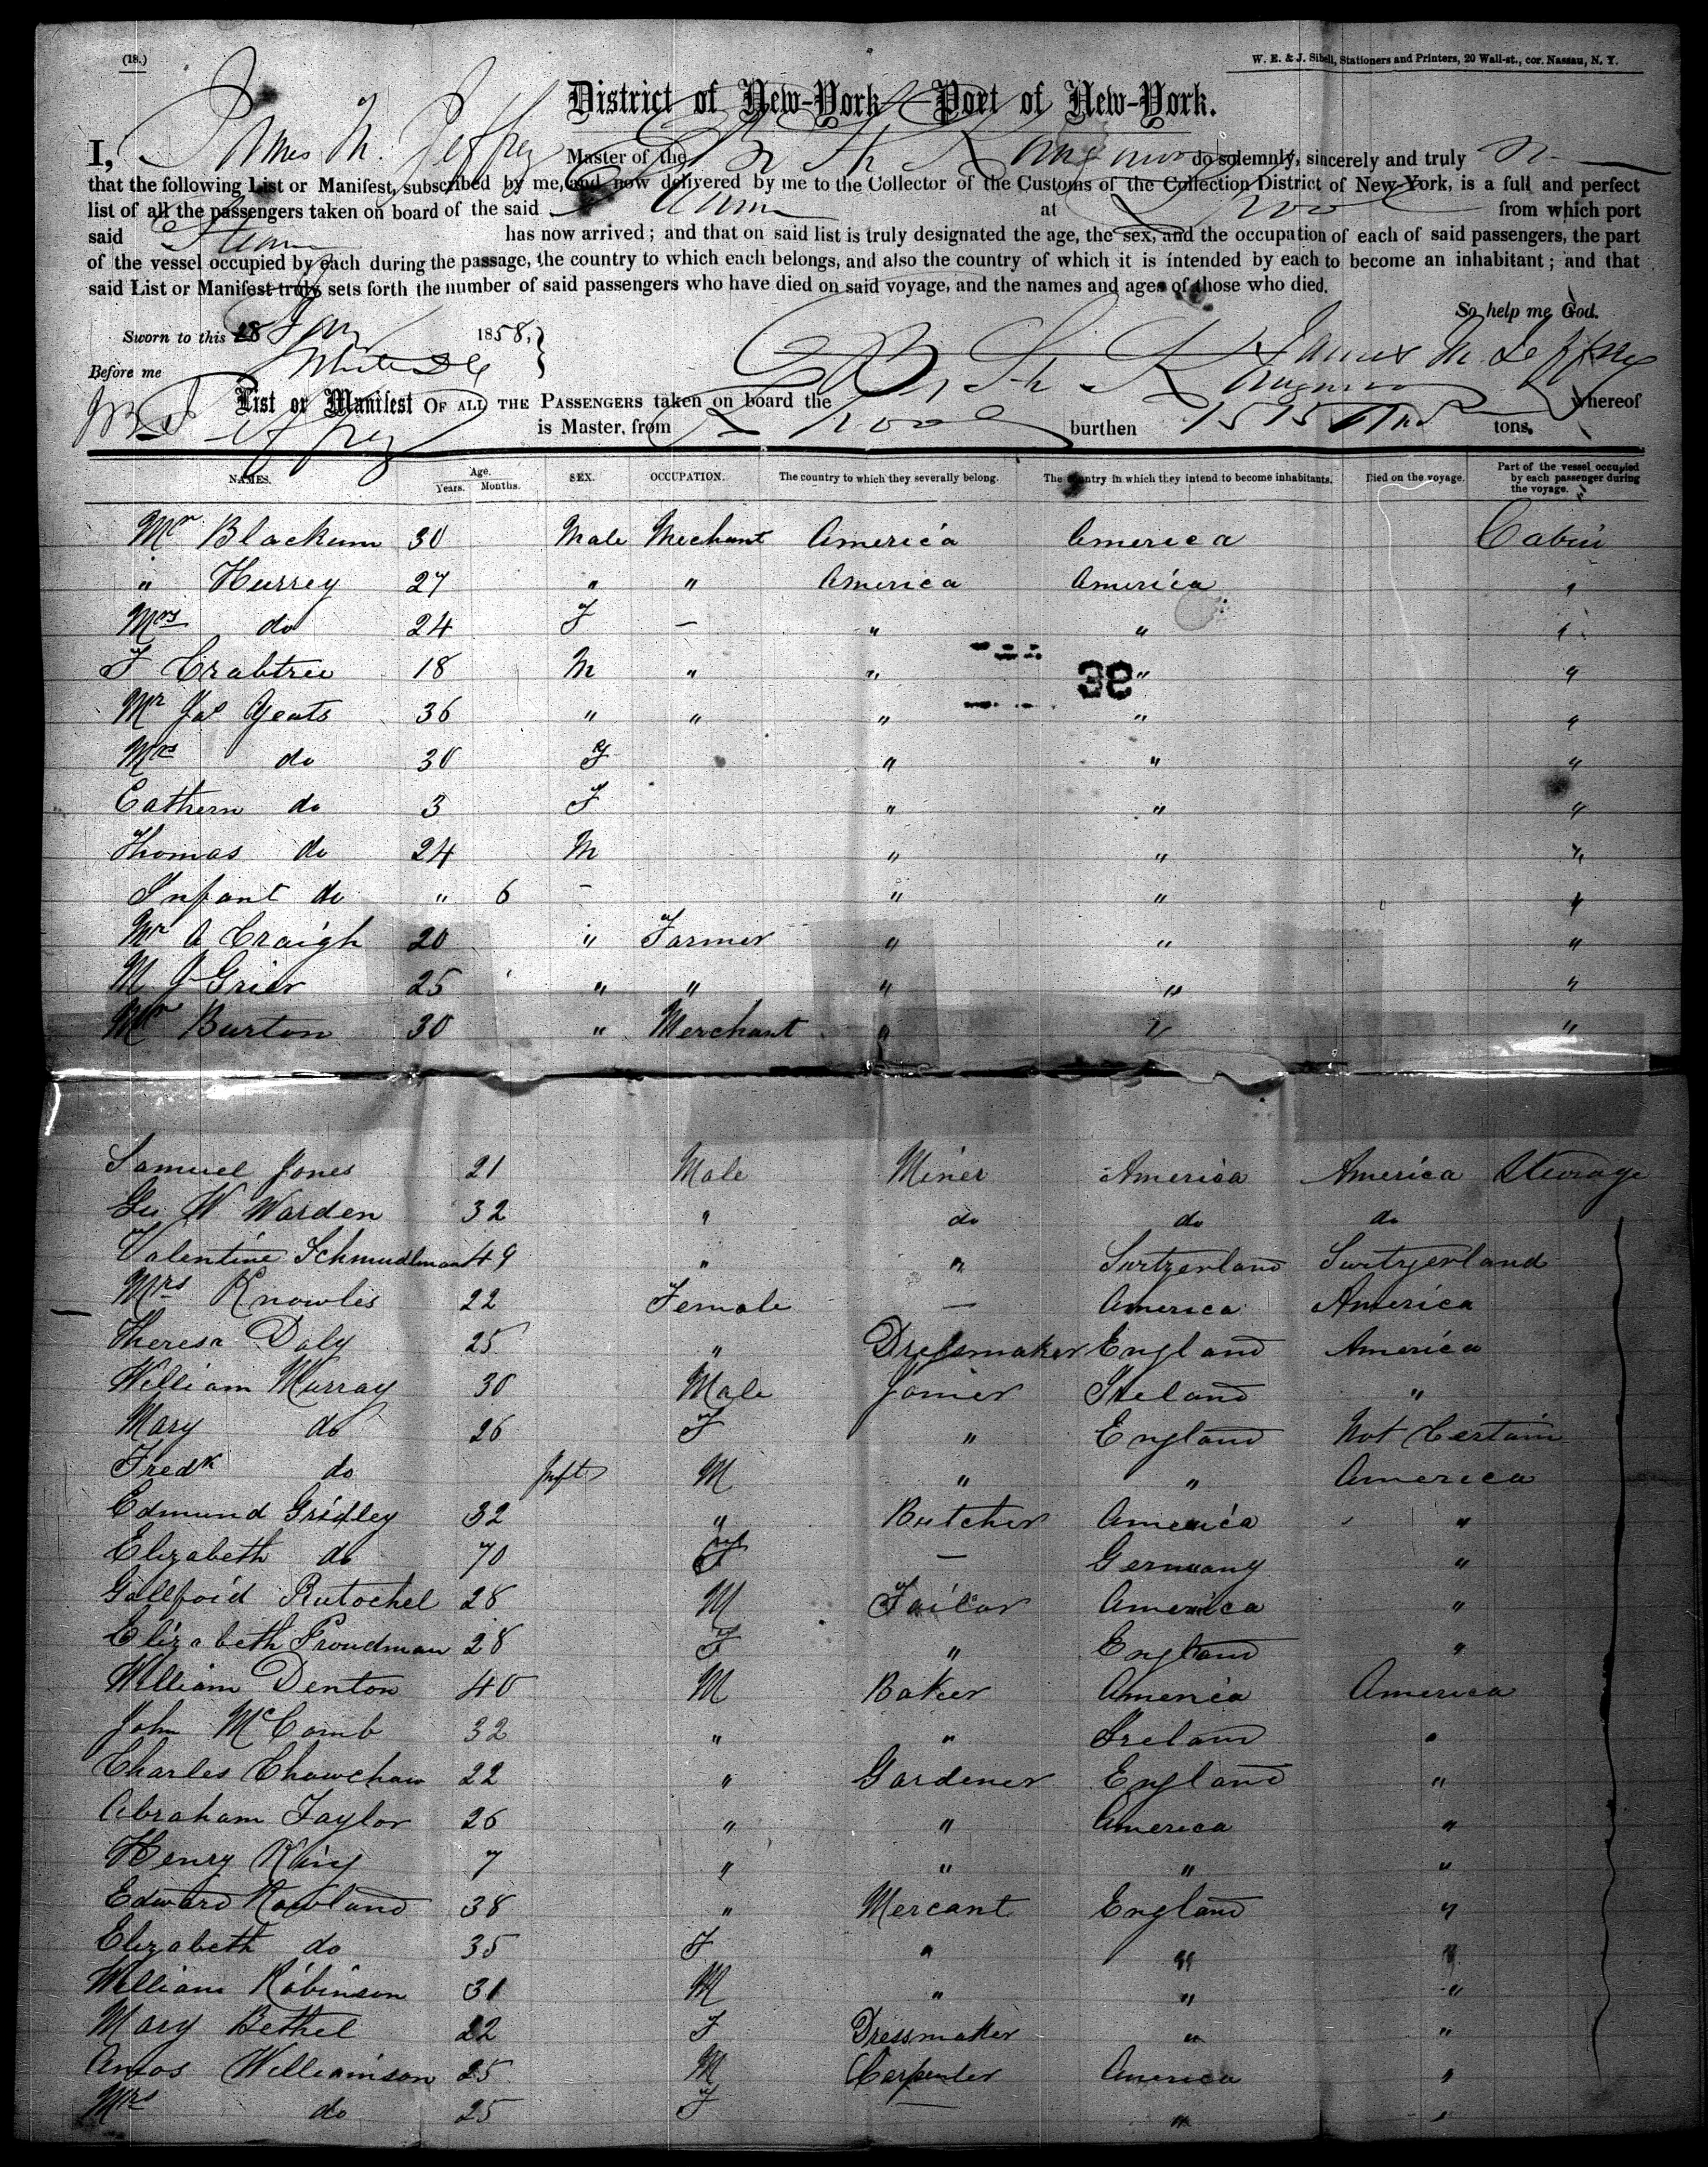 (18.)
W. E. & J. Sibell, Stationers and Printers, 20 Wall-st., cor. Nassau, N. Y.
District of New-York—Port of New-York.
I, James M. Jeffrey Master of the do solemnly, sincerely and truly
that the following List or Manifest, subscribed by me, and now delivered by me to the Collector of the Customs of the Collection District of New-York, is a full and perfect
list of all the passengers taken on board of the said at from which port
said has now arrived; and that on said list is truly designated the age, the sex, and the occupation of each of said passengers, the part
of the vessel occupied by each during the passage, the country to which each belongs, and also the country of which it is intended by each to become an inhabitant; and that
said List or Manifest truly sets forth the number of said passengers who have died on said voyage, and the names and ages of those who died.
So help me God.
Sworn to this 18 Jany 1858,
James M Jeffrey
Before me
List or Manifest OF ALL THE PASSENGERS taken on board the whereof
Jeffrey is Master, from burthen 1515 tons.
NAMES. Age. Years. Months. SEX. OCCUPATION. The country to which they severally belong. The country in which they intend to become inhabitants. Died on the voyage. Part of the vessel occupied by each passenger during the voyage.
Mr Blackum 30 Male Mechant America America Cabin
" Hurrey 27 " " America America "
Mrs do 24 F – " " "
F Crabtree 18 M " " " "
38
Mr Jas Yeats 36 " " " " "
Mrs do 30 F " " "
Cathern do 3 F " " "
Thomas do 24 M " " "
Infant do " 6 – " " "
Mr A Craigh 20 " Farmer " " "
M J Grier 25 " " " " "
Mr Burton 30 " Merchant " " "
Samuel Jones 21 Male Miner America America Steorage
Geo W Warden 32 " do do do
Valentine Schmudlman 49 " " Surtzerland Surtzerland
Mrs Knowles 22 Female — America America
Theresa Daly 25 " Dressmaker England America
William Murray 30 Male Joiner Ireland "
Mary do 26 F " England Not Certain
Fredk do Inft M " " America
Edmund Gridley 32 " Butcher America "
Elizabeth do 70 F — Germany "
Gallfoid Rutochel 28 M Tailor America "
Elizabeth Proudman 28 F " England "
William Denton 40 M Baker America America
John McComb 32 " " Ireland "
Charles Chowchow 22 " Gardener England "
Abraham Taylor 26 " " America "
Henry King 7 " " " "
Edward Rowland 38 " Mercant England "
Elizabeth do 35 F " " "
William Robinson 31 M " " "
Mary Bethel 22 F Dressmaker " "
Amos Williamson 25 M Carpenter America "
Mrs do 25 F — " "